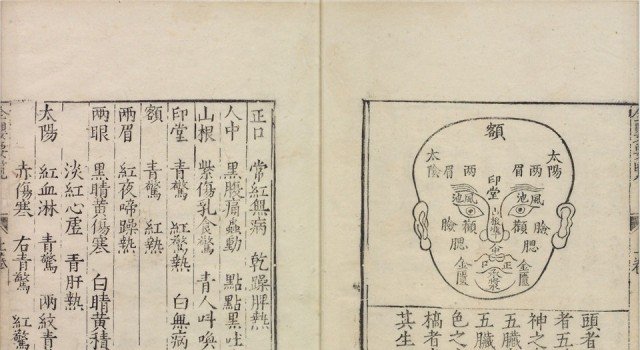 額
太陽
兩眉
太陽
印堂
風池
風池
山根
顴
顴
臉
臉
腮
腮
金匱
金匱
正口
承漿
頭者
者五
神之
五臟
五臟
色之
槁者
其生
正口 常紅無病 乾躁脾熱
人中 黑腹痛蟲動 點點黑吐
山根 紫傷乳食驚 青人叫喚
印堂 青驚 紅驚熱 白無病
額 青驚 紅熱
兩眉 紅夜啼躁熱
兩眼 黑睛黃傷寒 白睛黃積
淡紅心虛 青肝熱
太陽 紅血淋 青驚 兩紋青
赤傷寒 右青驚 紅驚